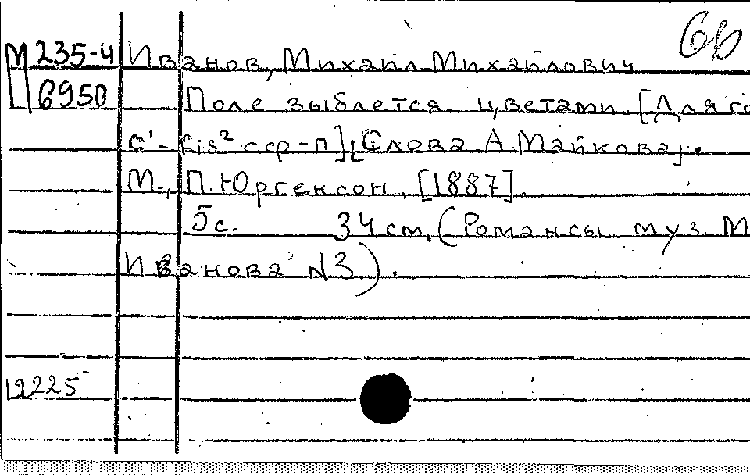 6b
М 235-4 Иванов, Михаил Михайлович
6950 Поле зыблется цветами. [Для го
c¹ - fis² сср-п] [Слова А. Майкова].
М., П. Юргенсон, [1887].
5с. 34 см. (Романсы муз. М
Иванова N3).
19225